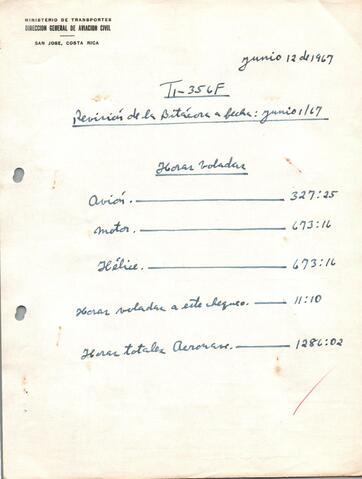 MINISTERIO DE TRANSPORTES
DIRECCION GENERAL DE AVIACION CIVIL
SAN JOSE, COSTA RICA
junio 12 de 1967
TI-356F
Revisión de la Bitácora a fecha: junio 1/67
Horas voladas
Avión. 327:25
motor. 673:16
Hélice. 673:16
Horas voladas a este chequeo. 11:10
Horas totales Aeronave. 1286:02